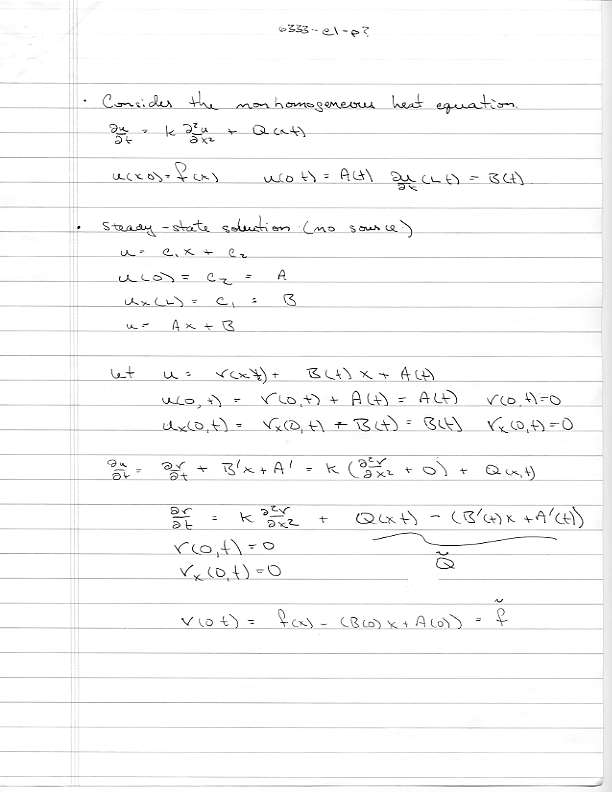 6333-e1-p2
· Consider the nonhomogeneous heat equation.
∂u/∂t = k ∂²u/∂x² + Q(x,t)
u(x0)=f(x) u(0t) = A(t) ∂u/∂x (Lt) = B(t).
· Steady-state solution (no source)
u = c₁x + c₂
u(0) = c₂ = A
uₓ(L) = c₁ = B
u = Ax + B
let u = v(x,t) + B(t)x + A(t)
u(0,t) = v(0,t) + A(t) = A(t) v(0,t)=0
uₓ(0,t) = vₓ(0,t) + B(t) = B(t) vₓ(0,t)=0
∂u/∂t = ∂v/∂t + B'x + A' = k (∂²v/∂x² + 0) + Q(x,t)
∂v/∂t = k ∂²v/∂x² + Q(xt) - (B'(t)x + A'(t))
v(0,t)=0 Q̃
vₓ(0,t)=0
v(0t) = f(x) - (B(0)x + A(0)) = f̃